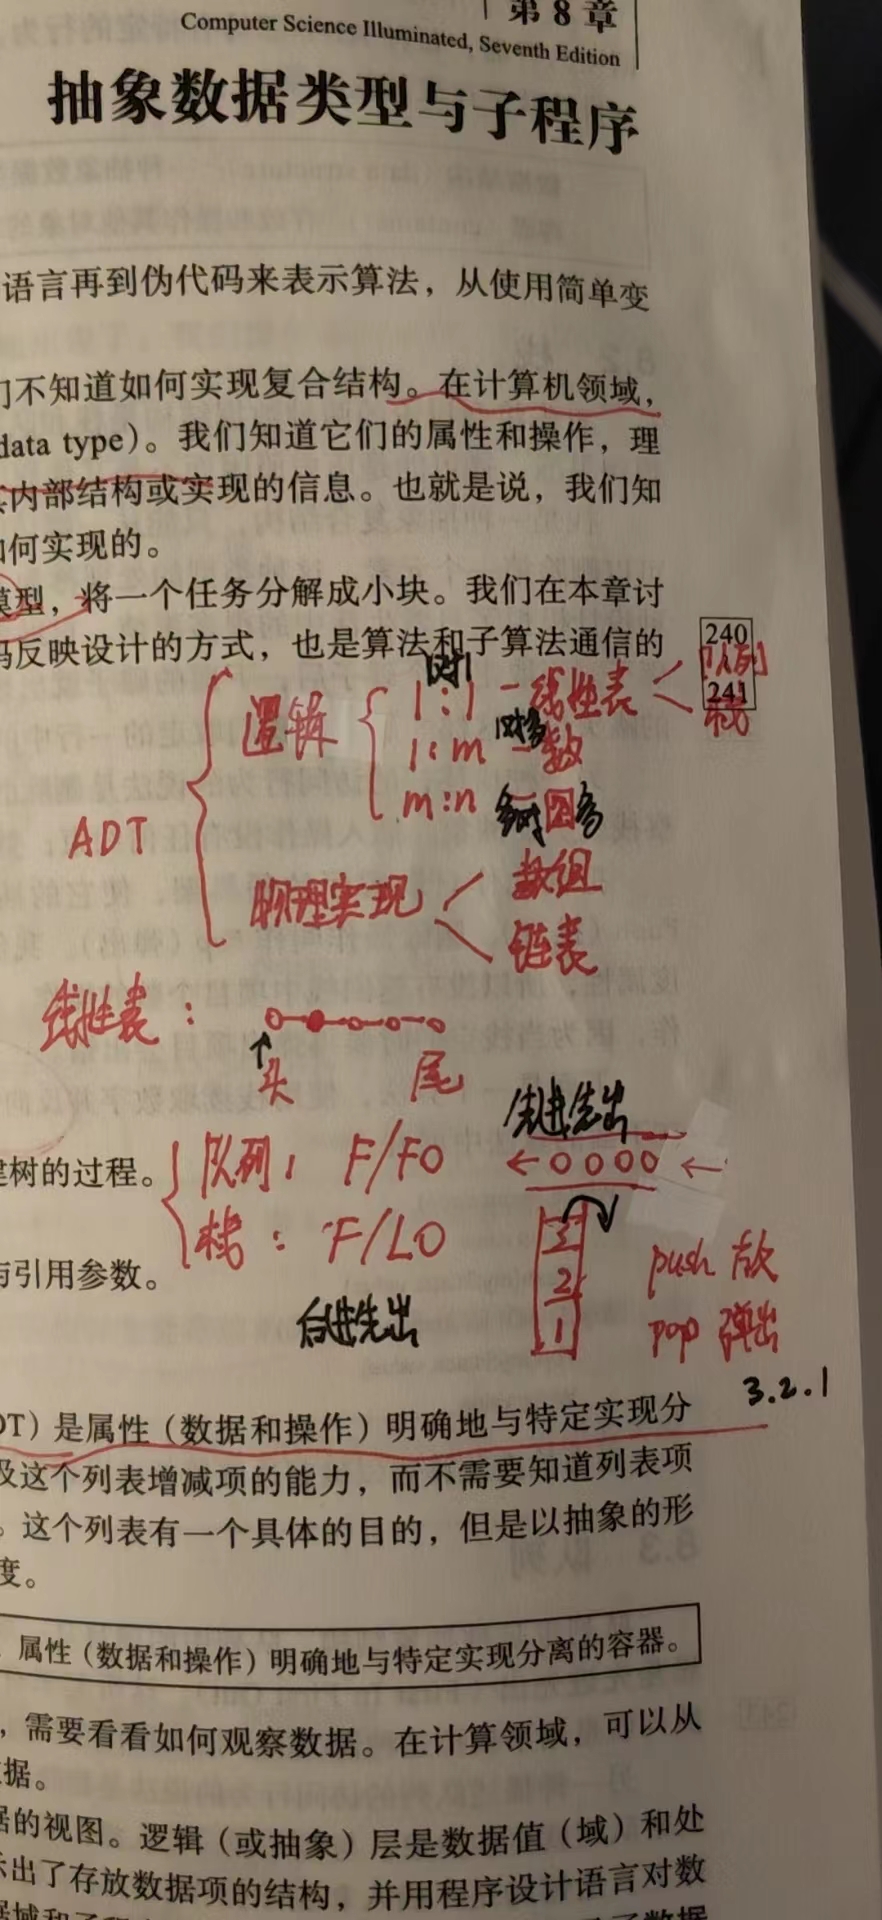 第 8 章
Computer Science Illuminated, Seventh Edition
抽象数据类型与子程序
语言再到伪代码来表示算法，从使用简单变
们不知道如何实现复合结构。在计算机领域，
data type）。我们知道它们的属性和操作，理
其内部结构或实现的信息。也就是说，我们知
如何实现的。
模型，将一个任务分解成小块。我们在本章讨
码反映设计的方式，也是算法和子算法通信的
240
241
ADT
逻辑
1对1
1:1 - 线性表
队列
栈
1对多
1:m
m:n
图
物理实现
数组
链表
线性表：
头
尾
先进先出
建树的过程。
队列： F/FO
栈： F/LO
与引用参数。
3
2
1
push 放
pop 弹出
后进先出
3.2.1
DT）是属性（数据和操作）明确地与特定实现分
及这个列表增减项的能力，而不需要知道列表项
。这个列表有一个具体的目的，但是以抽象的形
度。
属性（数据和操作）明确地与特定实现分离的容器。
，需要看看如何观察数据。在计算领域，可以从
据。
据的视图。逻辑（或抽象）层是数据值（域）和处
示出了存放数据项的结构，并用程序设计语言对数